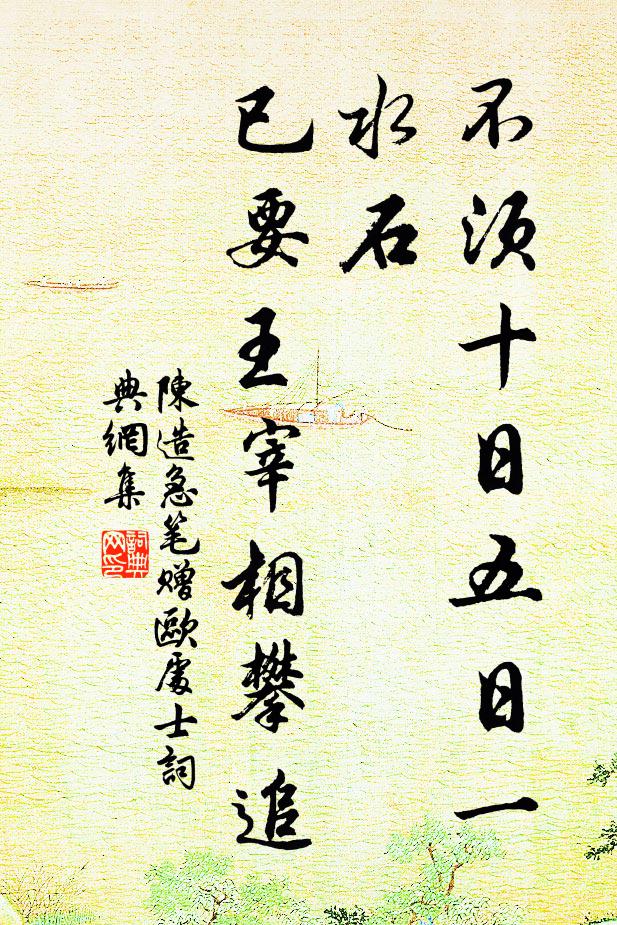 不須十日五日一
水石
已要王宰相攀追
陳造急笔赠歐處士詞
典網集
詞典
网印